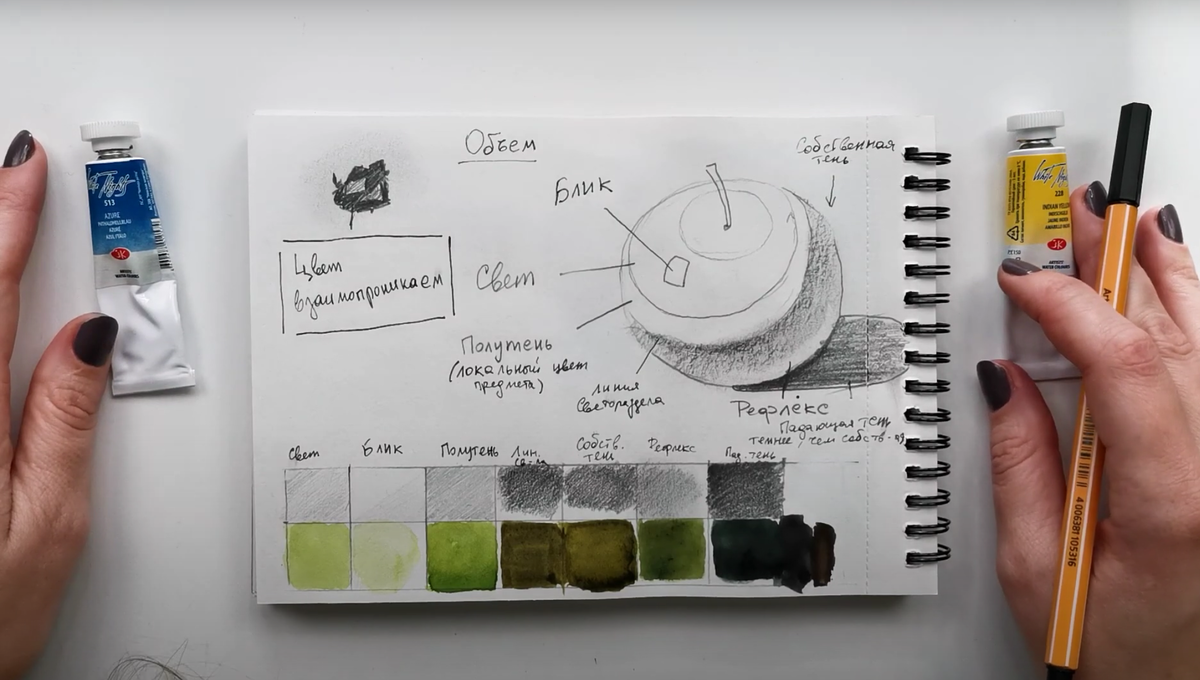 Объем
Собственная
тень
Блик
Цвет
взаимопроникаем
Свет
Полутень
(локальный цвет
предмета)
линия
Светораздела
Рефлекс
Падающая тень
темнее, чем собств-ая
Свет Блик Полутень Лин. Собств. Рефлекс Пад. тень
св-ла тень
513
AZURE
228
INDIAN YELLOW
4 006381 105316